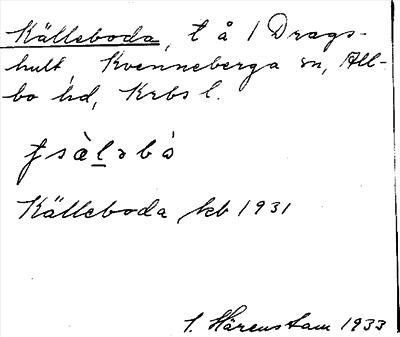 Källeboda, t å 1 Drags-
hult, Kvenneberga sn, All-
bo hd, Krbs l.
Källeboda kb 1931
1. Härenstam 1933